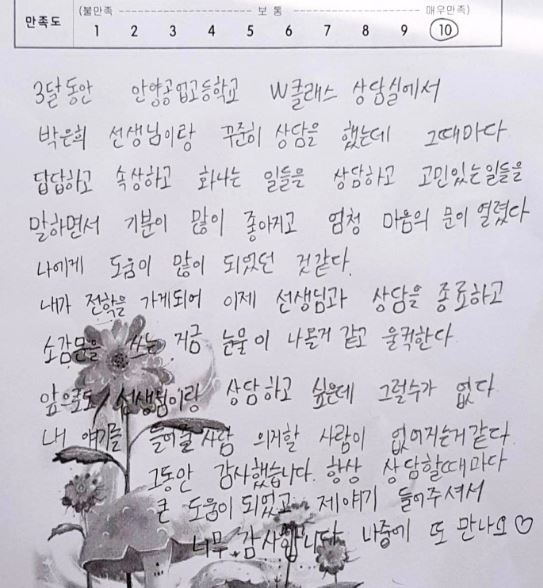 만족도 (불만족 보통 매우만족)
1 2 3 4 5 6 7 8 9 10
3달동안 안양공업고등학교 W클래스 상담실에서
박은희 선생님이랑 꾸준히 상담을 했는데 그때마다
답답하고 속상하고 화나는 일들을 상담하고 고민있는일들을
말하면서 기분이 많이 좋아지고 엄청 마음의 문이 열렸다
나에게 도움이 많이 되었던 것같다.
내가 전학을 가게되어 이제 선생님과 상담을 종료하고
소감문을 쓰는 지금 눈물이 나올거 같고 울컥한다.
앞으로도 선생님이랑 상담하고 싶은데 그럴수가 없다.
내 얘기를 들어줄사람 의지할 사람이 없어지는거같다.
그동안 감사했습니다. 항상 상담할때마다
큰 도움이 되었고 제얘기 들어주셔서
너무 감사합니다 나중에 또 만나요♡